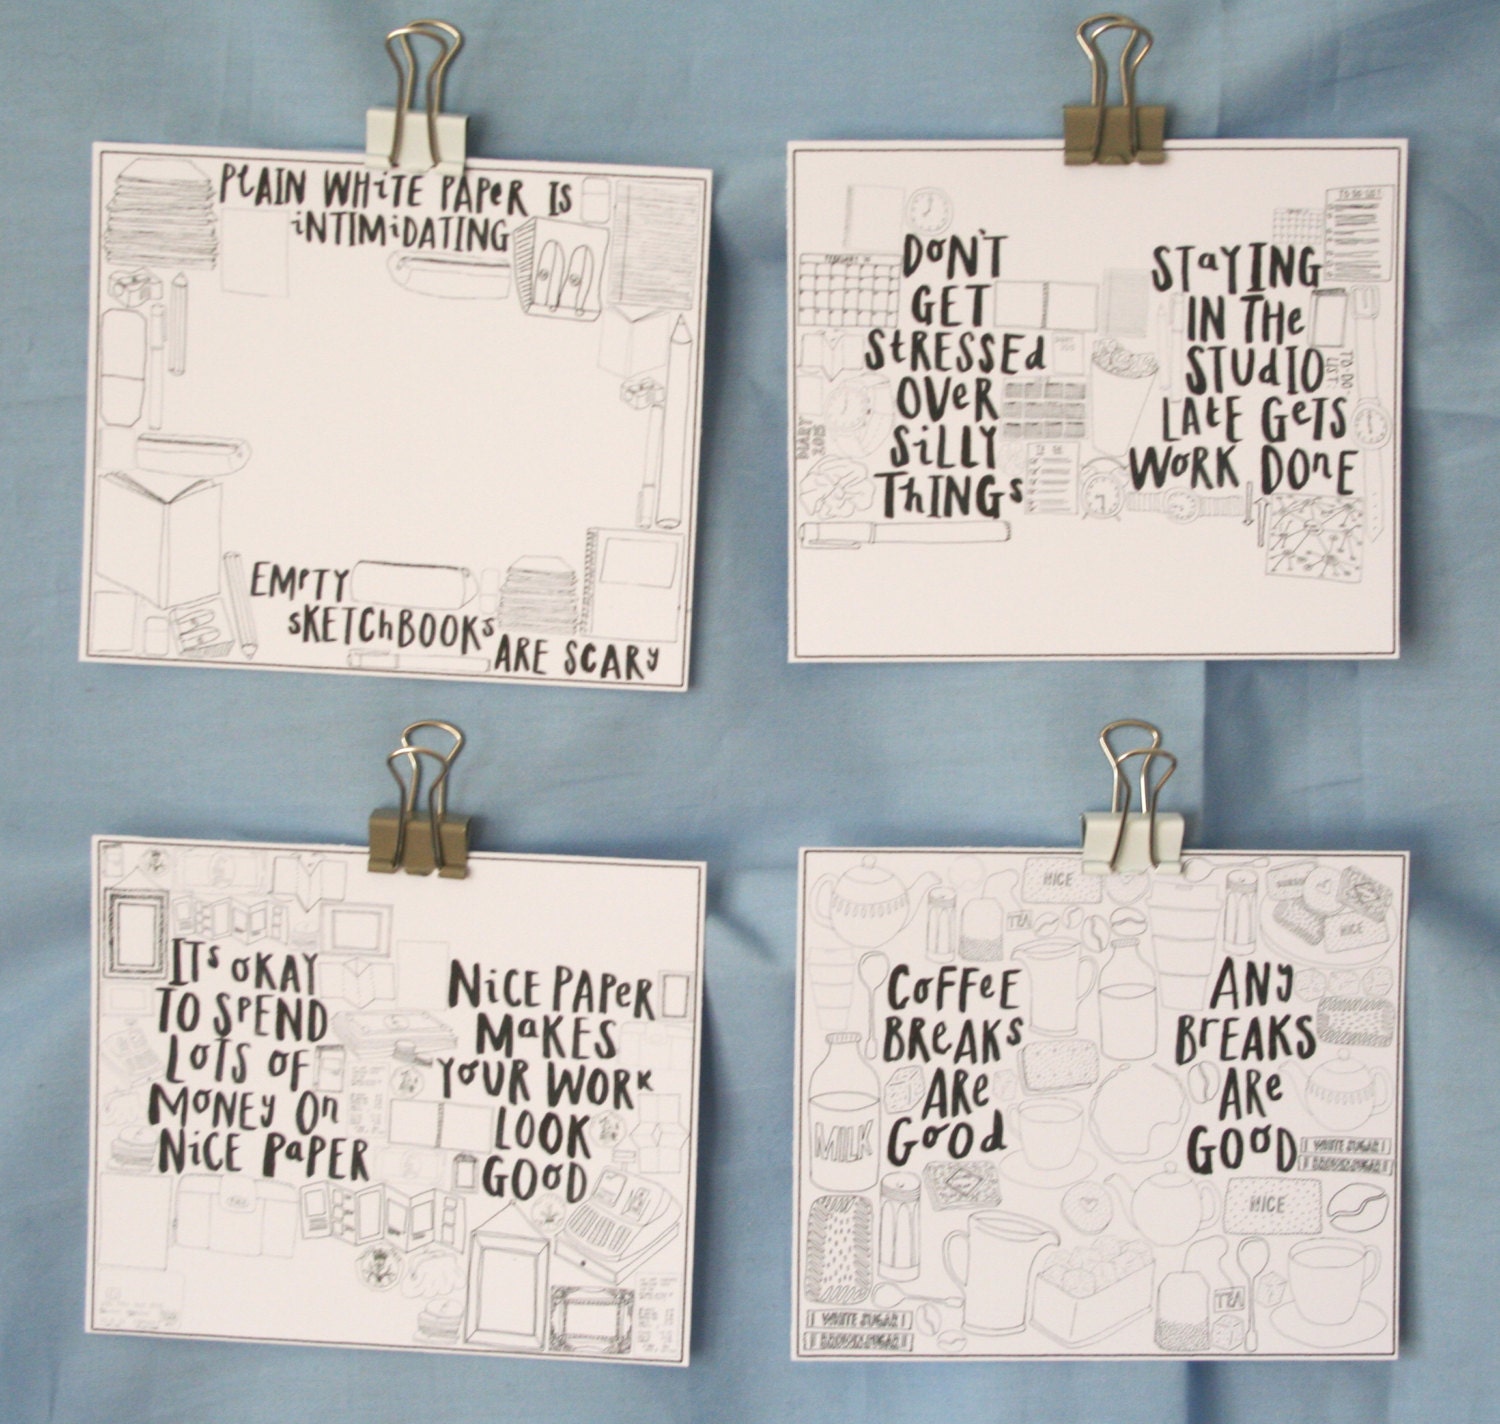 PLAIN WHITE PAPER IS
INTIMIDATING
EMPTY
SKETCHBOOKS
ARE SCARY
DON'T
GET
STRESSED
OVER
SILLY
THINGS
STAYING
IN THE
STUDIO
LATE GETS
WORK DONE
TO DO LIST
FEBRUARY
TO DO
LIST:
DIARY
2015
ITS OKAY
TO SPEND
LOTS OF
MONEY ON
NICE PAPER
NICE PAPER
MAKES
YOUR WORK
LOOK
GOOD
COFFEE
BREAKS
ARE
GOOD
ANY
BREAKS
ARE
GOOD
NICE
TEA
NICE
MILK
WHITE SUGAR
BROWN SUGAR
NICE
TEA
WHITE SUGAR
BROWN SUGAR